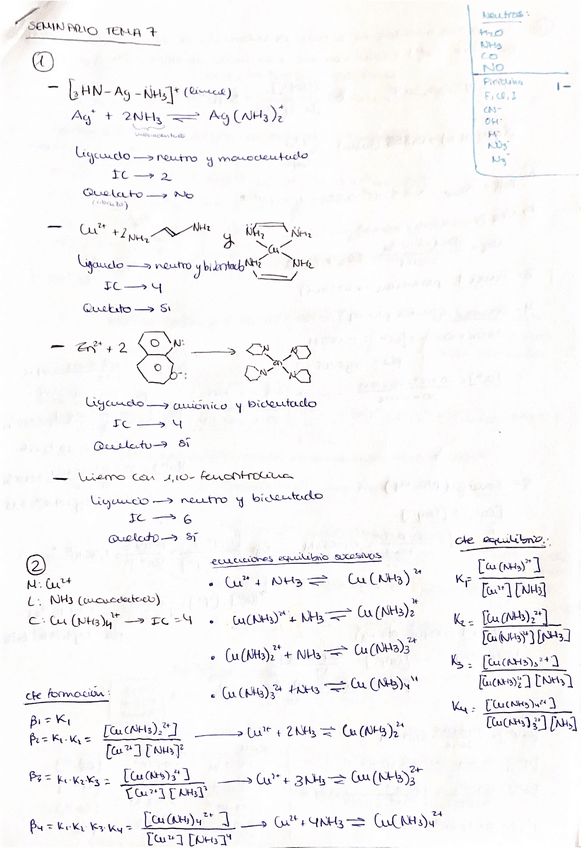 SEMINARIO TEMA 7
Neutros:
H2O
NH3
CO
NO
Piridina
F, Cl, I
CN-
OH-
H-
N3-
1-
①
- [3HN-Ag-NH3]+ (lineal)
Ag+ + 2NH3 ⇌ Ag(NH3)2+
monodentado
Ligando → neutro y monodentado
IC → 2
Quelato → No
- Cu2+ + 2 NH2 NH2 y NH2 NH2 Cu NH2 NH2
Ligando → neutro y bidentado
IC → 4
Quelato → Sí
- Zn2+ + 2 N: O-: → N N Zn N N
Ligando → aniónico y bidentado
IC → 4
Quelato → Sí
- hierro con 1,10-fenantrolina
Ligando → neutro y bidentado
IC → 6
Quelato → Sí
②
M: Cu2+
L: NH3 (monodentado)
C: Cu(NH3)4 2+ → IC = 4
ecuaciones equilibrio sucesivas
• Cu2+ + NH3 ⇌ Cu(NH3)2+
• Cu(NH3)2+ + NH3 ⇌ Cu(NH3)2 2+
• Cu(NH3)2 2+ + NH3 ⇌ Cu(NH3)3 2+
• Cu(NH3)3 2+ + NH3 ⇌ Cu(NH3)4 2+
cte equilibrio:
K1 = [Cu(NH3)2+] / [Cu2+][NH3]
K2 = [Cu(NH3)2 2+] / [Cu(NH3)2+][NH3]
K3 = [Cu(NH3)3 2+] / [Cu(NH3)2 2+][NH3]
K4 = [Cu(NH3)4 2+] / [Cu(NH3)3 2+][NH3]
cte formación:
β1 = K1
β2 = K1·K2 = [Cu(NH3)2 2+] / [Cu2+][NH3]2 → Cu2+ + 2NH3 ⇌ Cu(NH3)2 2+
β3 = K1·K2·K3 = [Cu(NH3)3 2+] / [Cu2+][NH3]3 → Cu2+ + 3NH3 ⇌ Cu(NH3)3 2+
β4 = K1·K2·K3·K4 = [Cu(NH3)4 2+] / [Cu2+][NH3]4 → Cu2+ + 4NH3 ⇌ Cu(NH3)4 2+